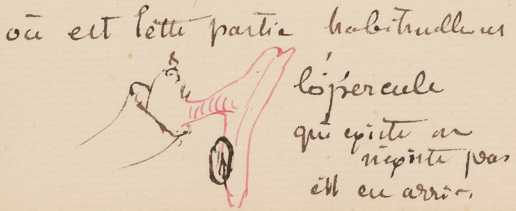 où est cette partie habituellement
l'opercule
qui existe ou
n'existe pas
est en arrière